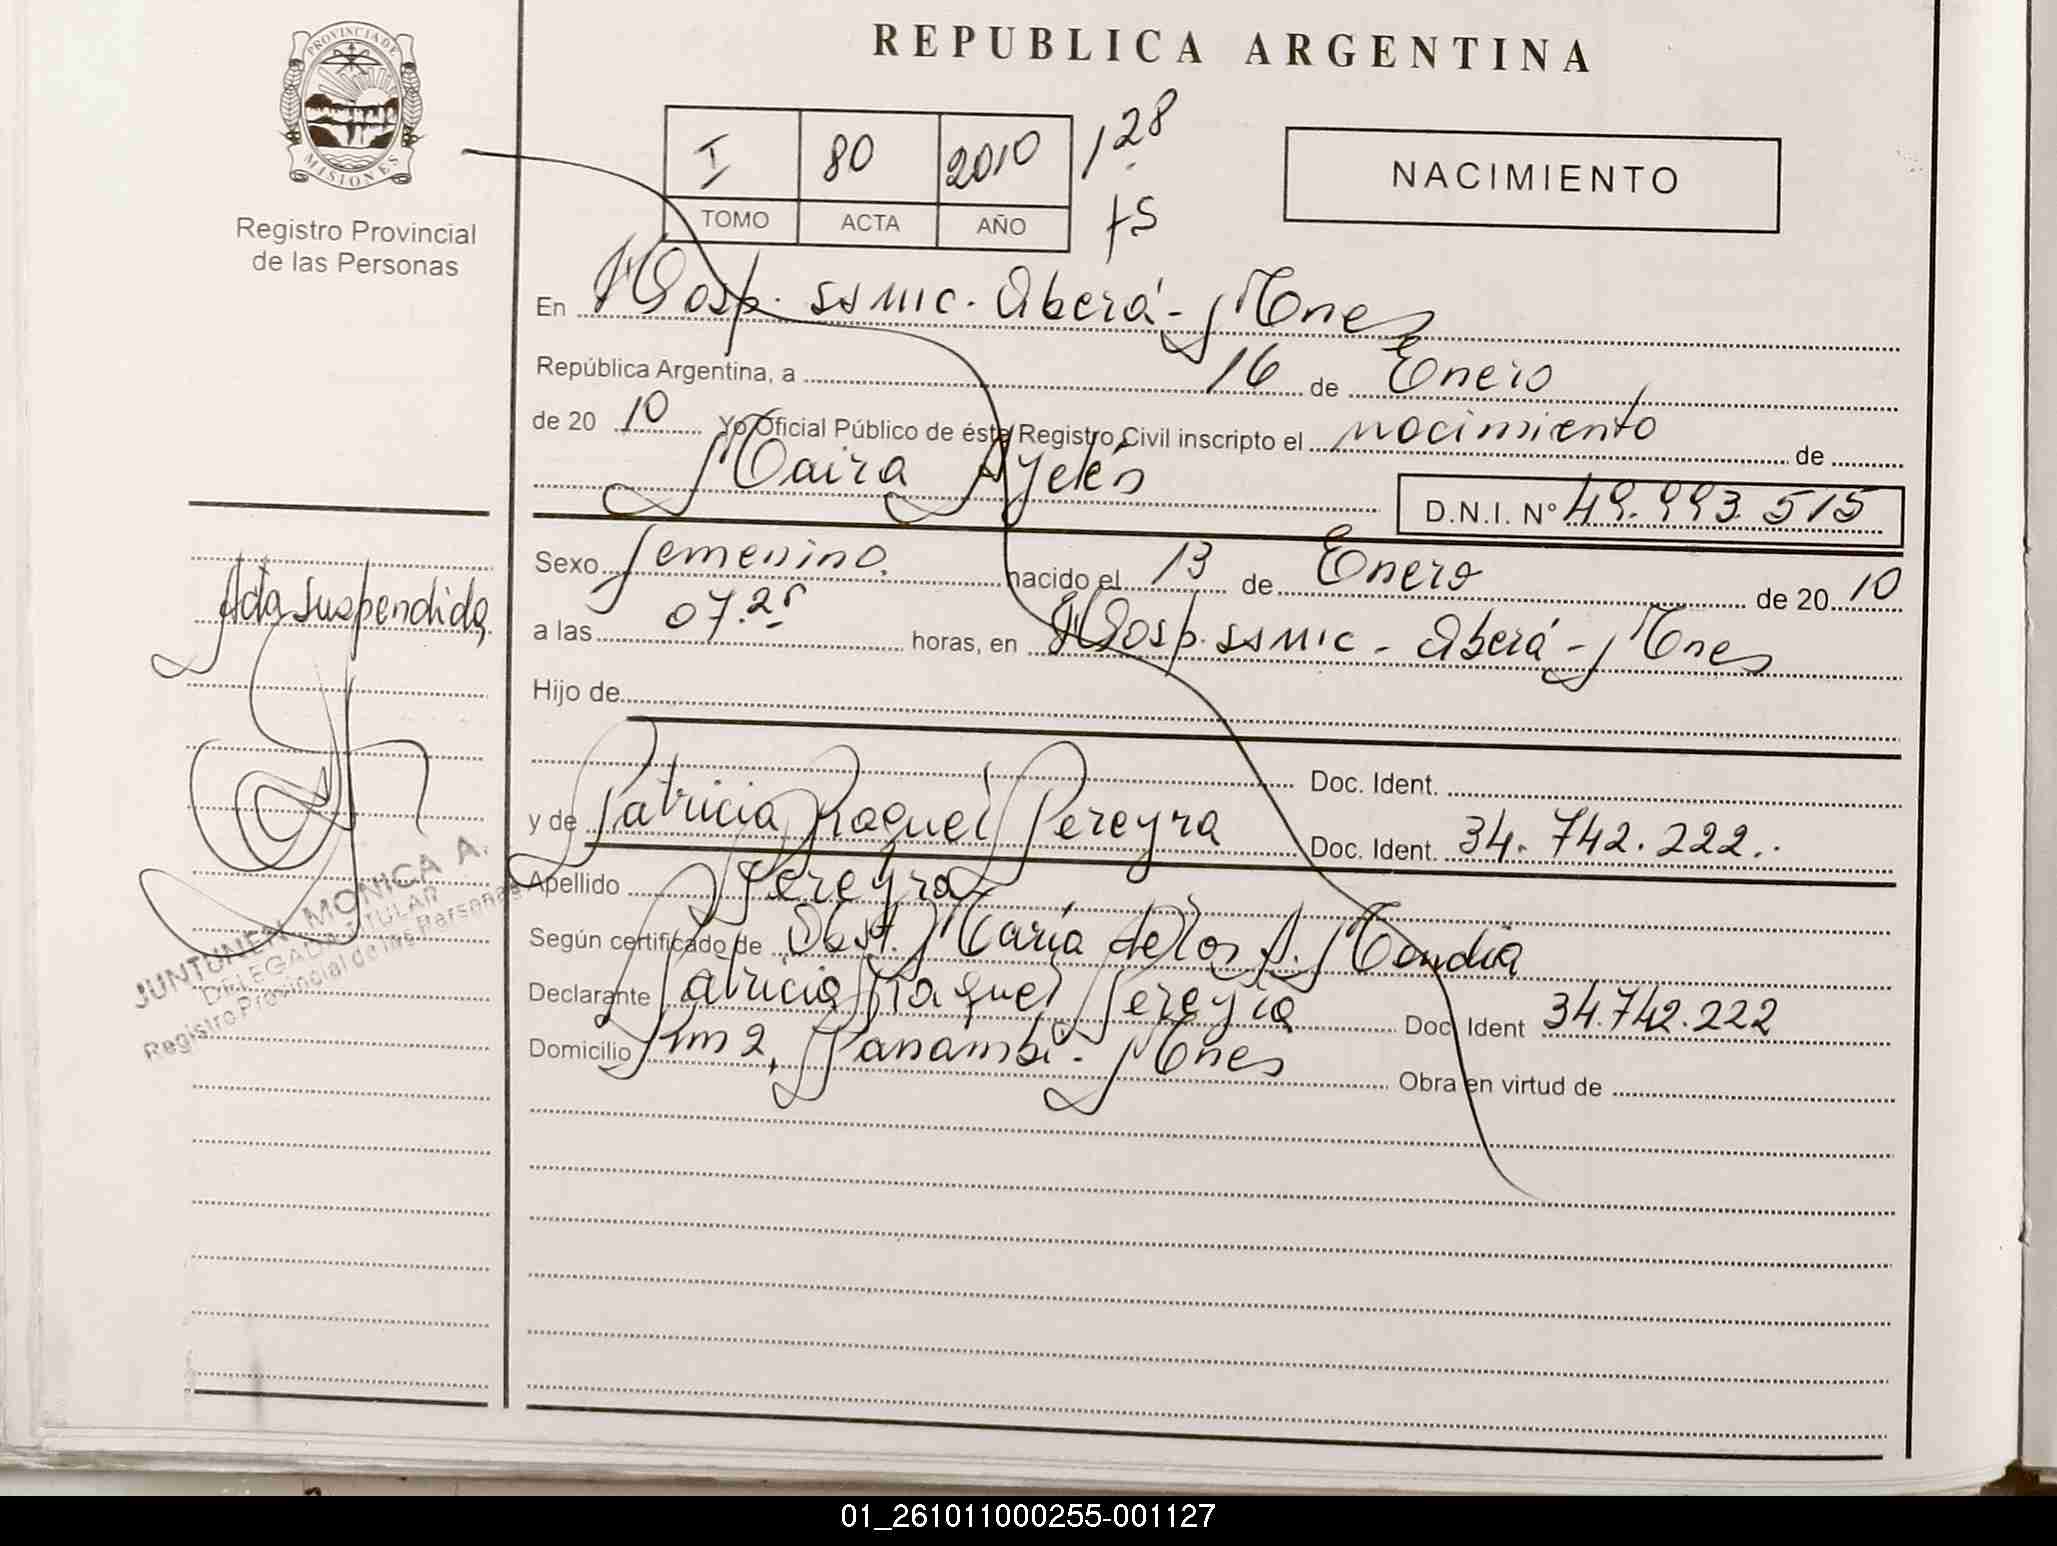 PROVINCIA DE
MISIONES
Registro Provincial
de las Personas
REPUBLICA ARGENTINA
I 80 2010 128
TOMO ACTA AÑO fs
NACIMIENTO
En Hosp. SSMIC. Oberá - Mnes
República Argentina, a 16 de Enero
de 20 10 Yo Oficial Público de ésta Registro Civil inscripto el nacimiento de
Maira Ayelén D.N.I. N° 49.993.515
Sexo femenino. nacido el 13 de Enero de 20 10
a las 07.25 horas, en Hosp. SSMIC - Oberá - Mnes
Hijo de
Doc. Ident.
y de Patricia Raquel Pereyra Doc. Ident. 34.742.222.
Apellido Pereyra
Según certificado de Obst. María de los A. Mendia
Declarante Patricia Raquel Pereyra Doc. Ident 34.742.222
Domicilio Km 2, Panambí - Mnes Obra en virtud de
Acta suspendida
JUNTUNEN MONICA A.
DELEGADA TITULAR
Registro Provincial de las Personas
01_261011000255-001127